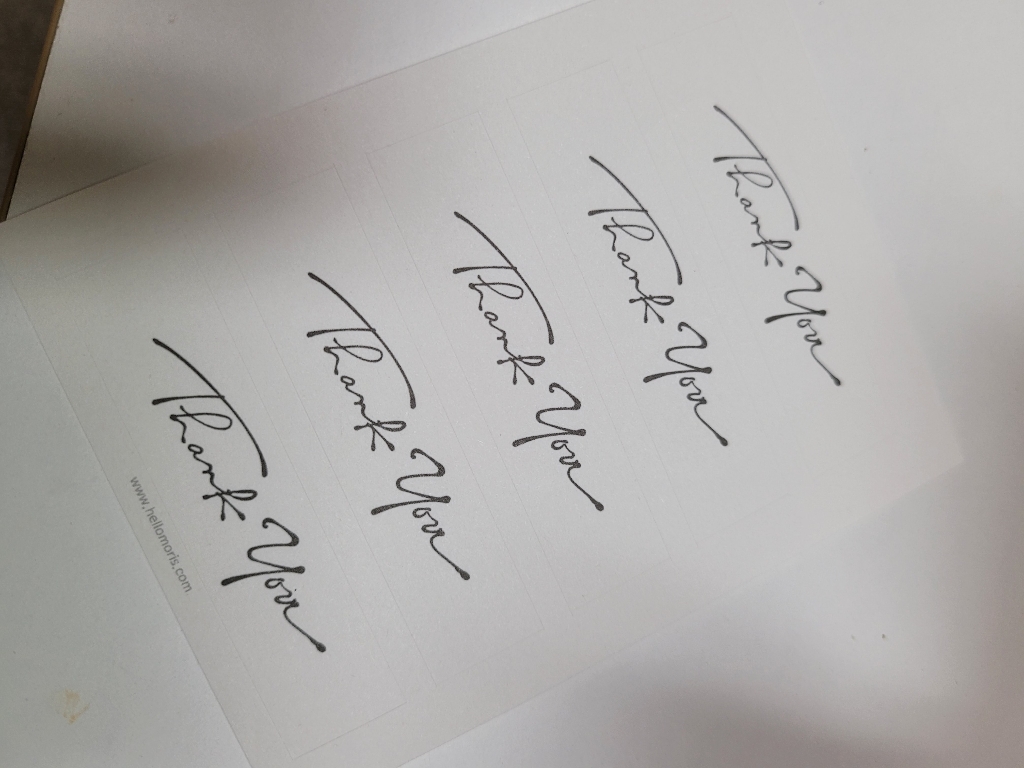 Thank You
Thank You
Thank You
Thank You
Thank You
www.hellomoris.com